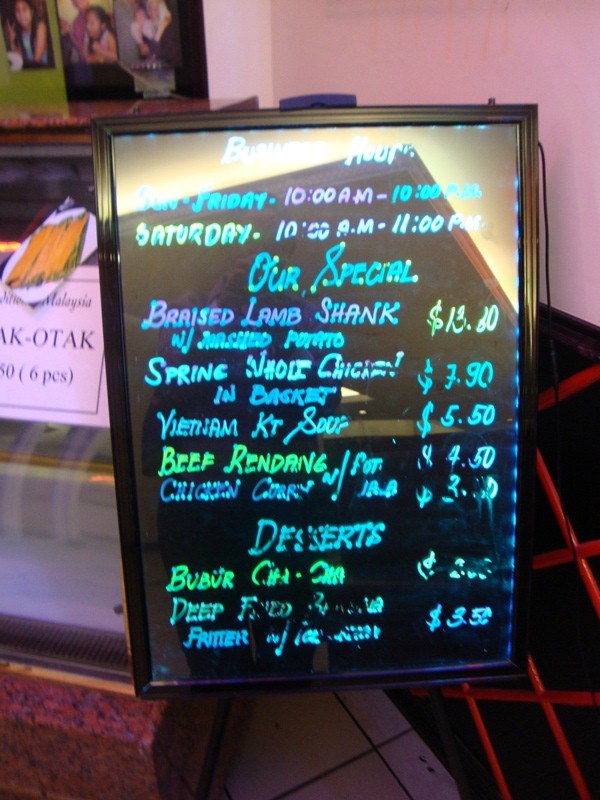 Business Hour
Sun-Friday. 10:00 AM - 10:00 P.M.
Saturday. 10:00 A.M - 11:00 P.M.
Our Special
Braised Lamb Shank $13.80
w/ Mashed Potato
Spring Whole Chicken $7.90
in Basket
Vietnam KT Soup $5.50
Beef Rendang $4.50
Chicken Curry w/
Desserts
Bubur Cha-Cha
Deep Fried $3.50
Fritter w/
Malaysia
AK-OTAK
50 (6 pcs)